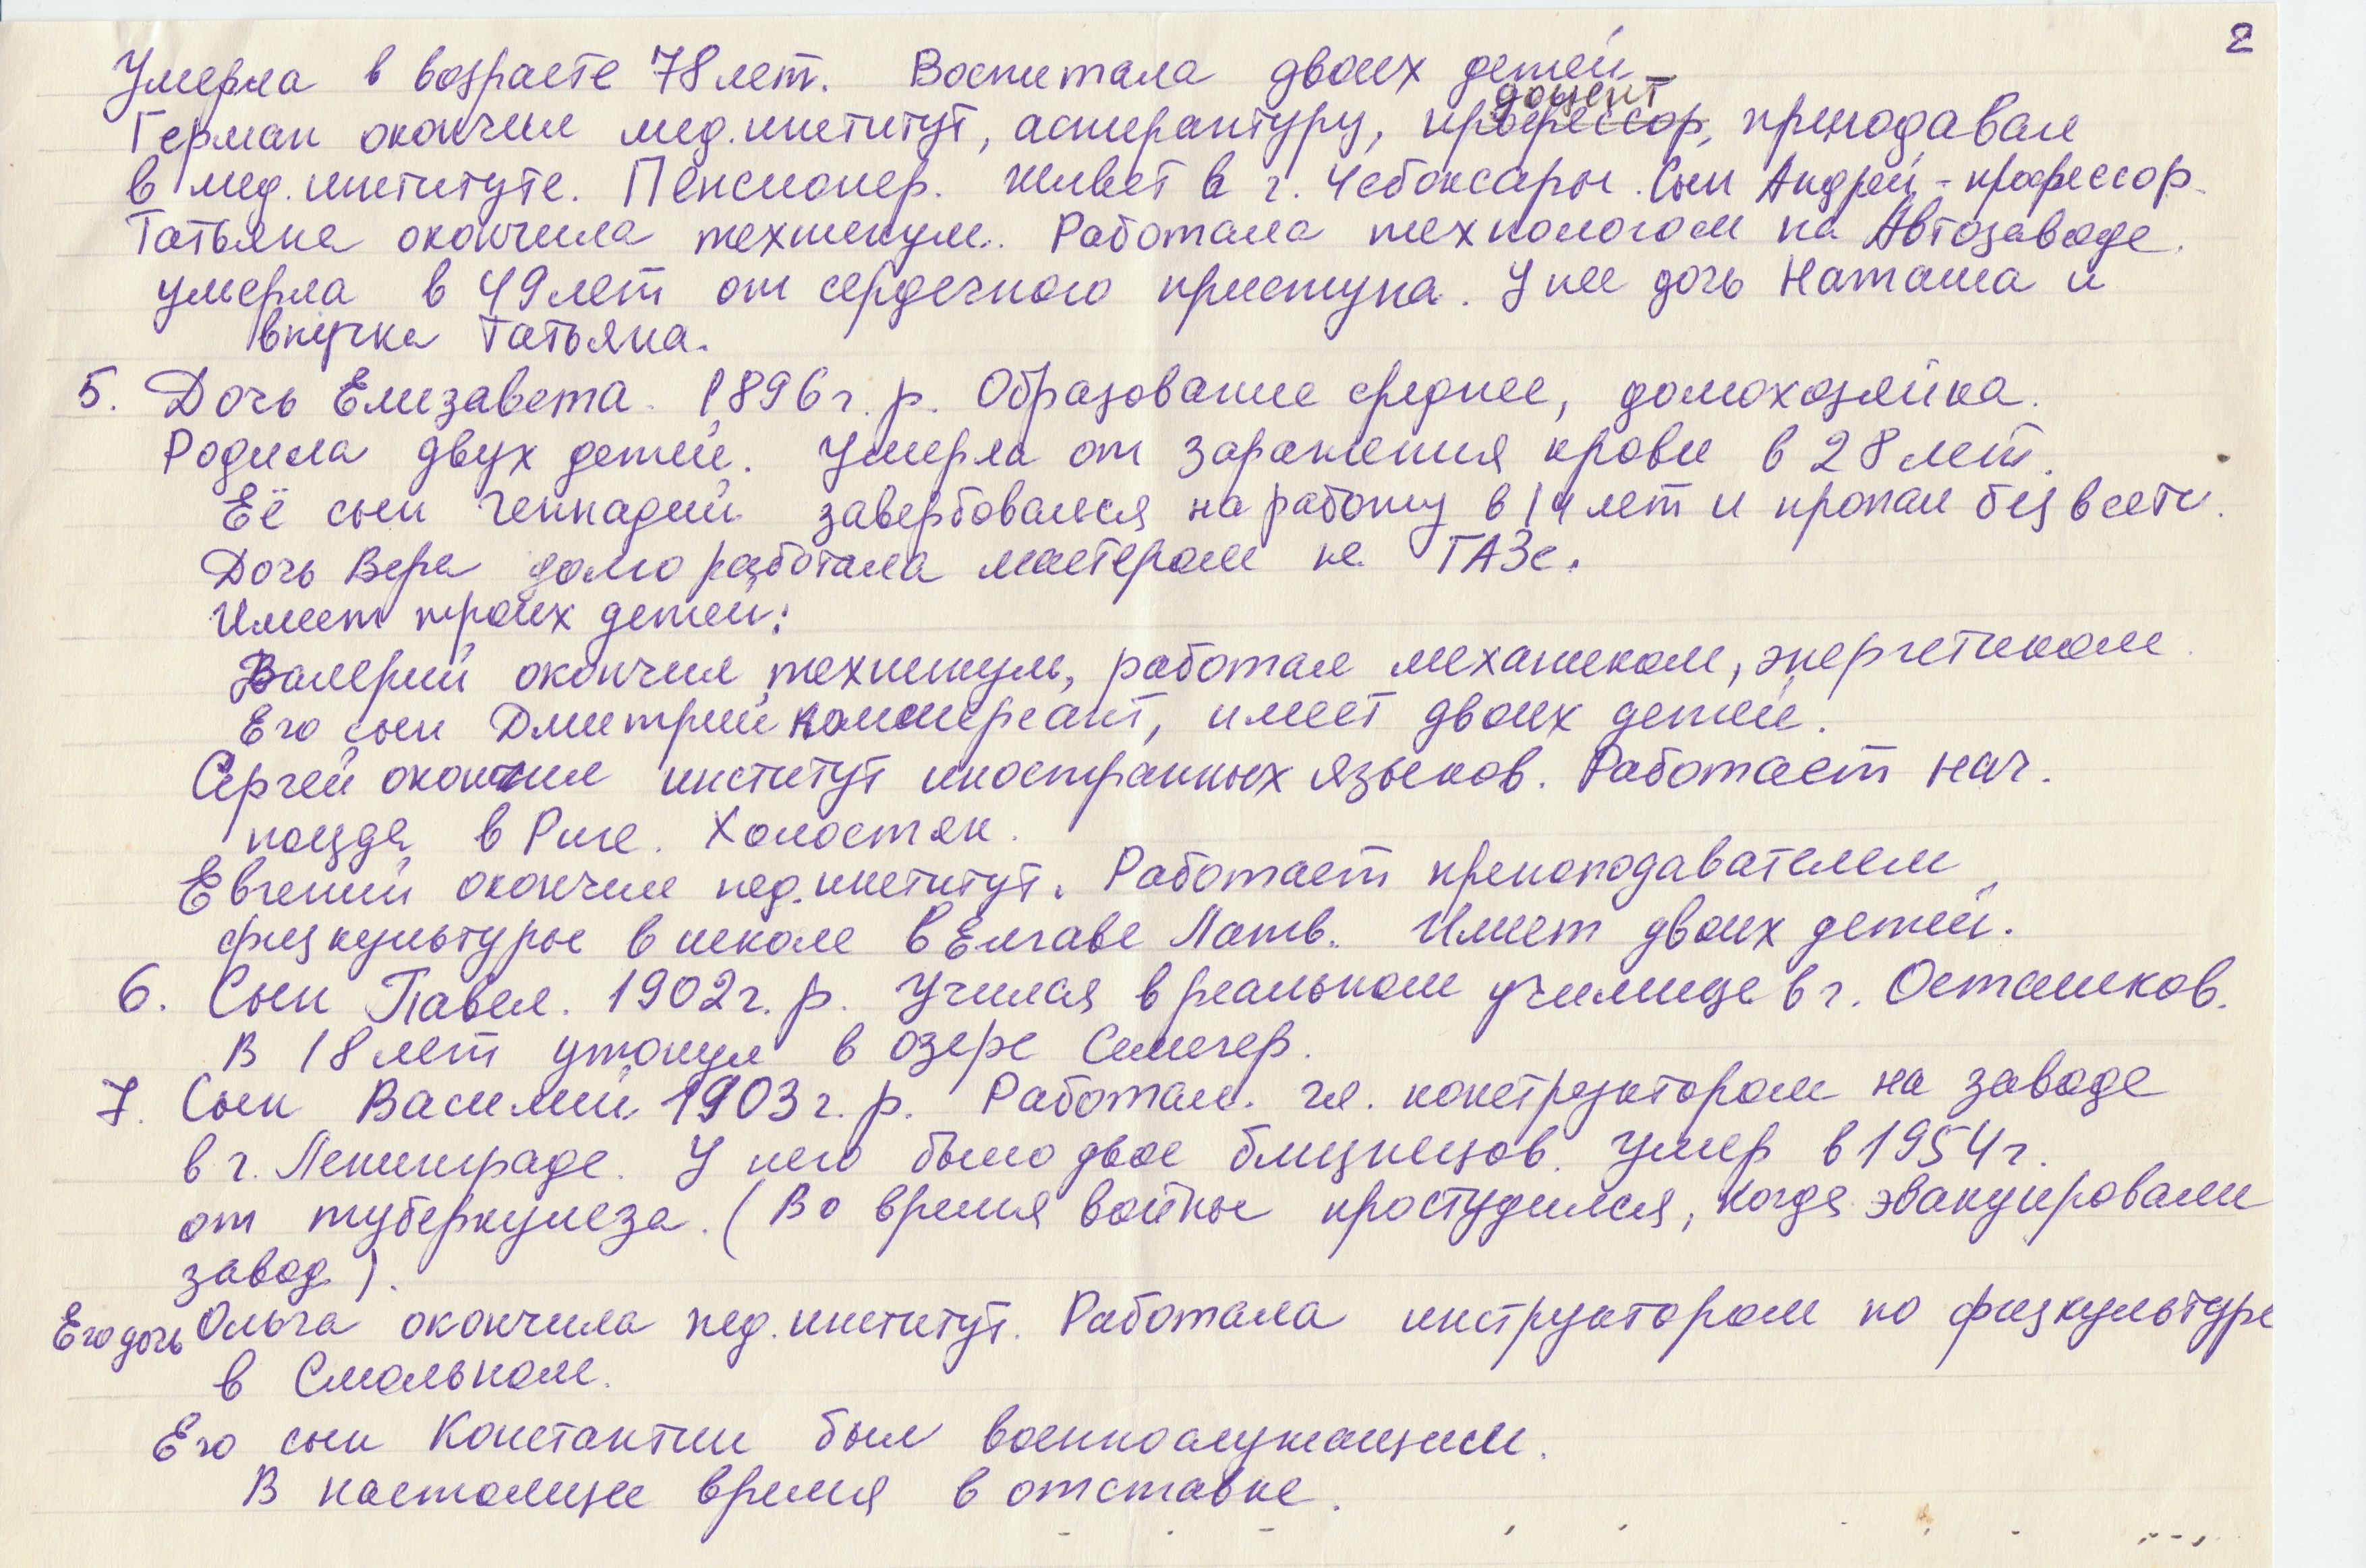 2
Умерла в возрасте 78 лет. Воспитала двоих детей
доцент
Герман окончил мед.институт, аспирантуру, профессор, преподавал
в мед.институте. Пенсионер. Живет в г. Чебоксары. Сын Андрей - профессор.
Татьяна окончила техникум. Работала технологом на Автозаводе.
умерла в 49 лет от сердечного приступа. У нее дочь Наташа и
внучка Татьяна.
5. Дочь Елизавета. 1896 г. р. Образование среднее, домохозяйка.
Родила двух детей. Умерла от заражения крови в 28 лет.
Её сын Геннадий завербовался на работу в 14 лет и пропал без вести.
Дочь Вера долго работала мастером на ГАЗе.
Имеет троих детей:
Валерий окончил техникум, работал механиком, энергетиком.
Его сын Дмитрий коммерсант, имеет двоих детей.
Сергей окончил институт иностранных языков. Работает нач.
поезда в Риге. Холостяк.
Евгений окончил пед.институт. Работает преподавателем
физкультуры в школе в Елгаве Латв. Имеет двоих детей.
6. Сын Павел. 1902 г. р. Учился в реальном училище в г. Осташков.
В 18 лет утонул в озере Селигер.
7. Сын Василий 1903 г. р. Работал. гл. конструктором на заводе
в г. Ленинграде. У него было двое близнецов. Умер в 1954 г.
от туберкулеза. (Во время войны простудился, когда эвакуировали
завод).
Его дочь Ольга окончила пед.институт. Работала инструктором по физкультуре
в Смольном.
Его сын Константин был военнослужащим.
В настоящее время в отставке.